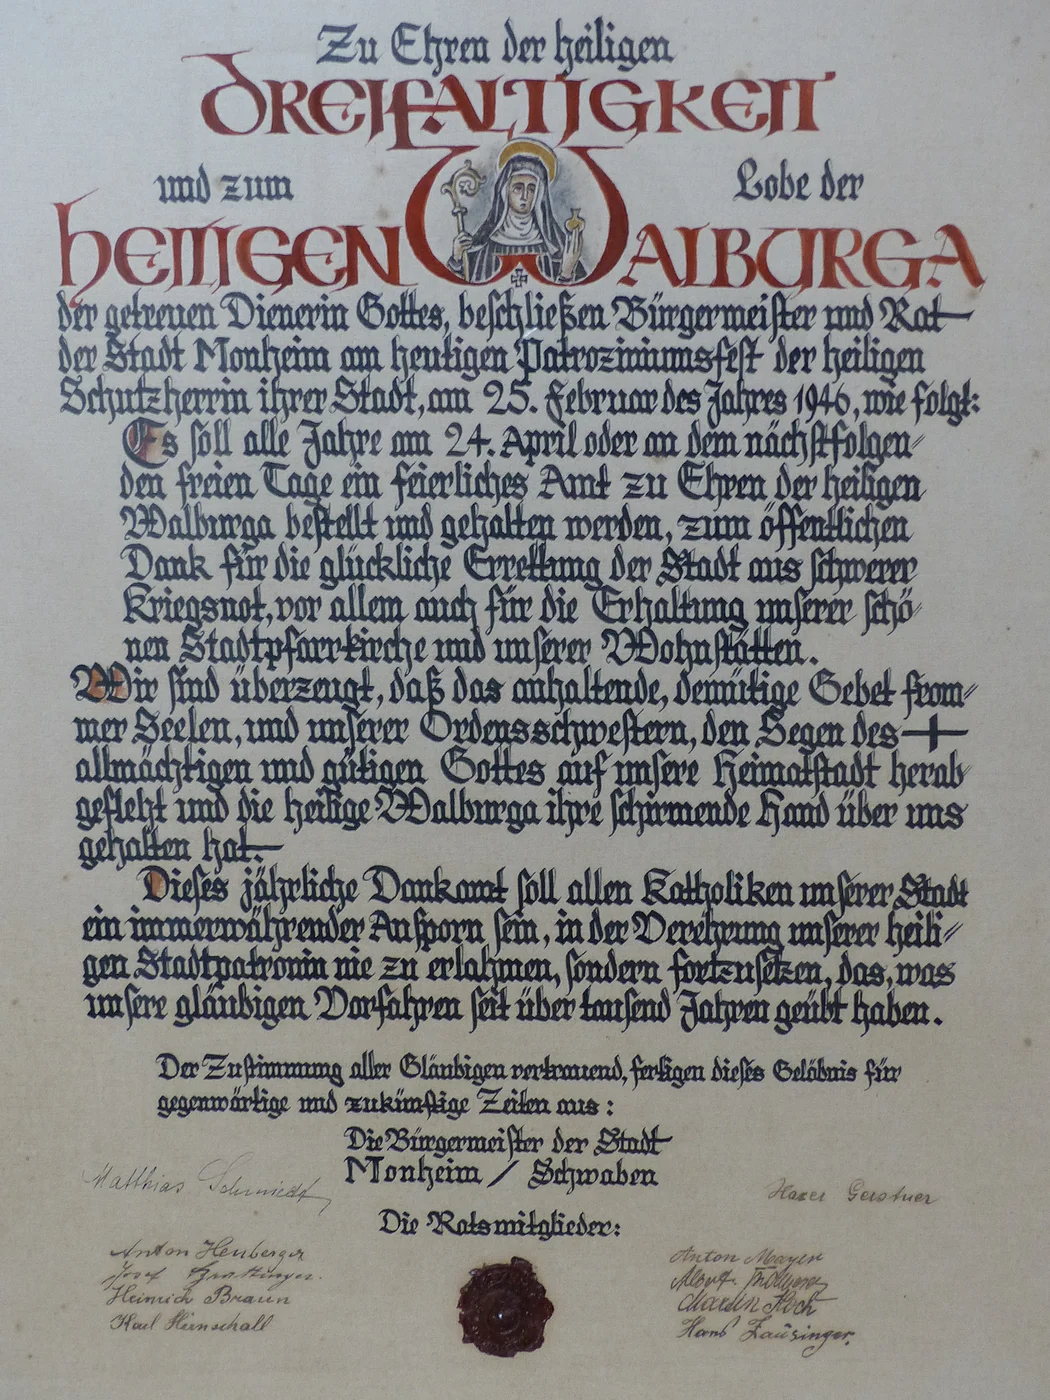 Zu Ehren der heiligen
DREIFALTIGKEIT
und zum Lobe der
HEILIGEN WALBURGA
der getreuen Dienerin Gottes, beschließen Bürgermeister und Rat
der Stadt Monheim am heutigen Patroziniumsfest der heiligen
Schutzherrin ihrer Stadt, am 25. Februar des Jahres 1946, wie folgt:
Es soll alle Jahre am 24. April oder an dem nächstfolgen-
den freien Tage ein feierliches Amt zu Ehren der heiligen
Walburga bestellt und gehalten werden, zum öffentlichen
Dank für die glückliche Errettung der Stadt aus schwerer
Kriegsnot, vor allem auch für die Erhaltung unserer schö-
nen Stadtpfarrkirche und unserer Wohnstätten.
Wir sind überzeugt, daß das anhaltende, demütige Gebet from-
mer Seelen, und unserer Ordensschwestern, den Segen des
allmächtigen und gütigen Gottes auf unsere Heimatstadt herab-
gefleht und die heilige Walburga ihre schirmende Hand über uns
gehalten hat.
Dieses jährliche Dankamt soll allen Katholiken unserer Stadt
ein immerwährender Ansporn sein, in der Verehrung unserer heili-
gen Stadtpatronin nie zu erlahmen, sondern fortzusetzen, das, was
unsere gläubigen Vorfahren seit über tausend Jahren geübt haben.
Der Zustimmung aller Gläubigen vertrauend, fertigen dieses Gelöbnis für
gegenwärtige und zukünftige Zeiten aus:
Die Bürgermeister der Stadt
Monheim / Schwaben
Matthias Schmiedt
Gerstner
Die Ratsmitglieder:
Anton Heuberger
Josef
Heinrich Braun
Karl
Anton Mayer
Martin Koch
Hans Zausinger